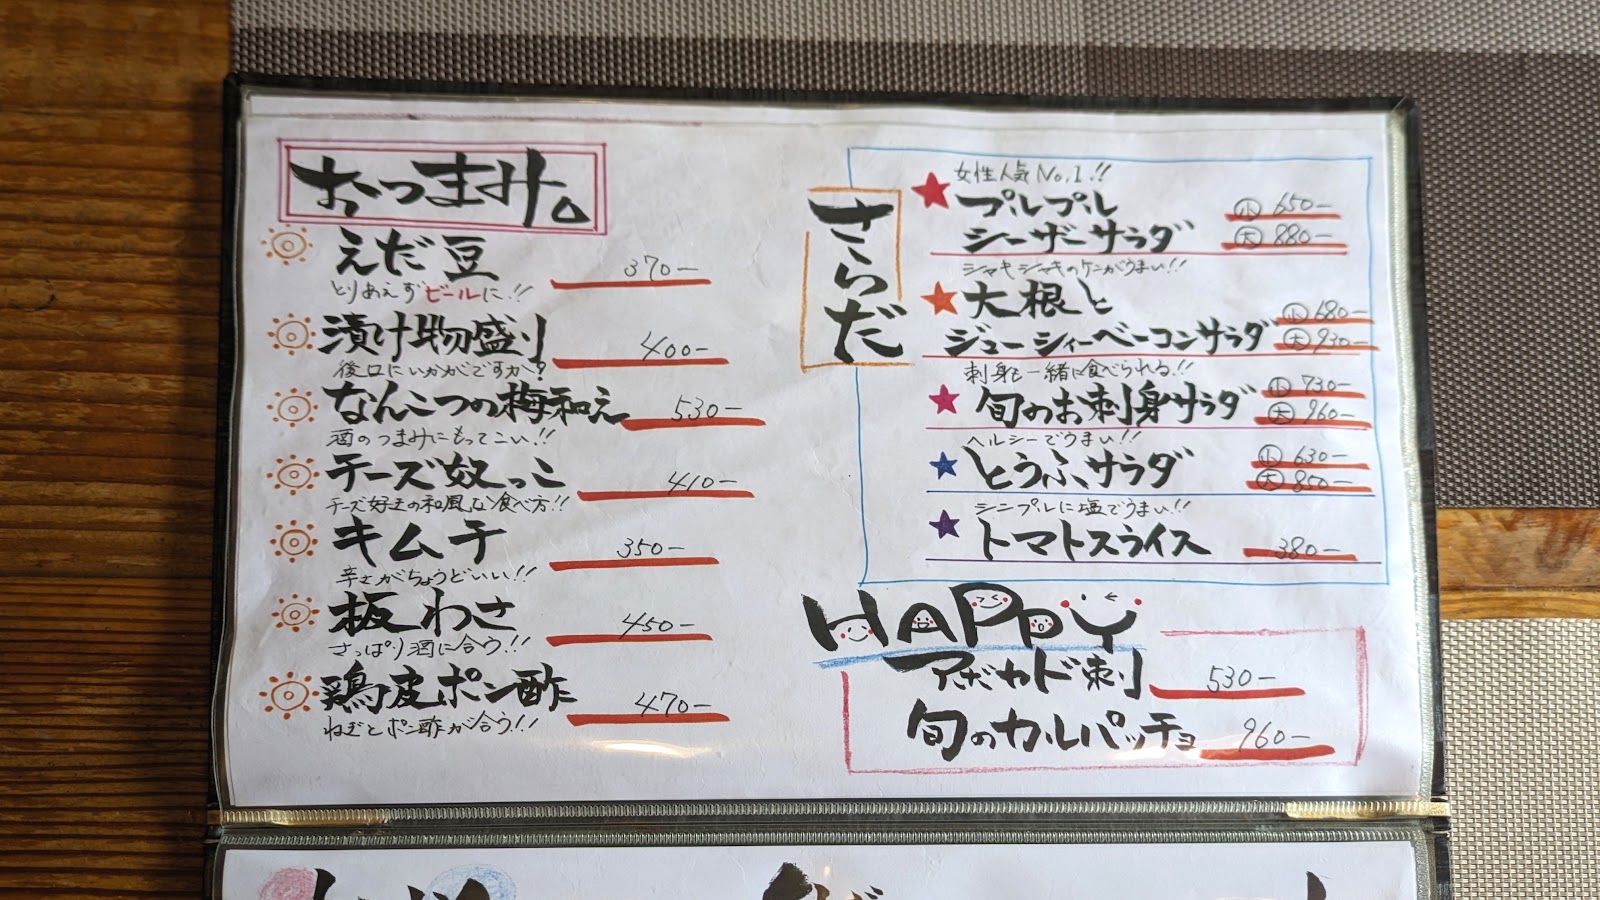 おつまみ。
えだ豆 370-
とりあえずビールに!!
漬け物盛り 400-
後口にいかがですか?
なんこつの梅和え 530-
酒のつまみにもってこい!!
チーズ奴っこ 410-
チーズ好きの和風な食べ方!!
キムチ 350-
辛さがちょうどいい!!
板わさ 450-
さっぱり酒に合う!!
鶏皮ポン酢 470-
ねぎとポン酢が合う!!
さらだ
女性人気No.1!!
プルプル
シーザーサラダ
小 650-
大 880-
シャキシャキのケンがうまい!!
大根と
ジューシィーベーコンサラダ
小 680-
大 930-
刺身も一緒に食べられる!!
旬のお刺身サラダ
小 730-
大 960-
ヘルシーでうまい!!
とうふサラダ
小 630-
大 850-
シンプルに塩でうまい!!
トマトスライス 380-
HAPPY
アボカド刺 530-
旬のカルパッチョ 960-